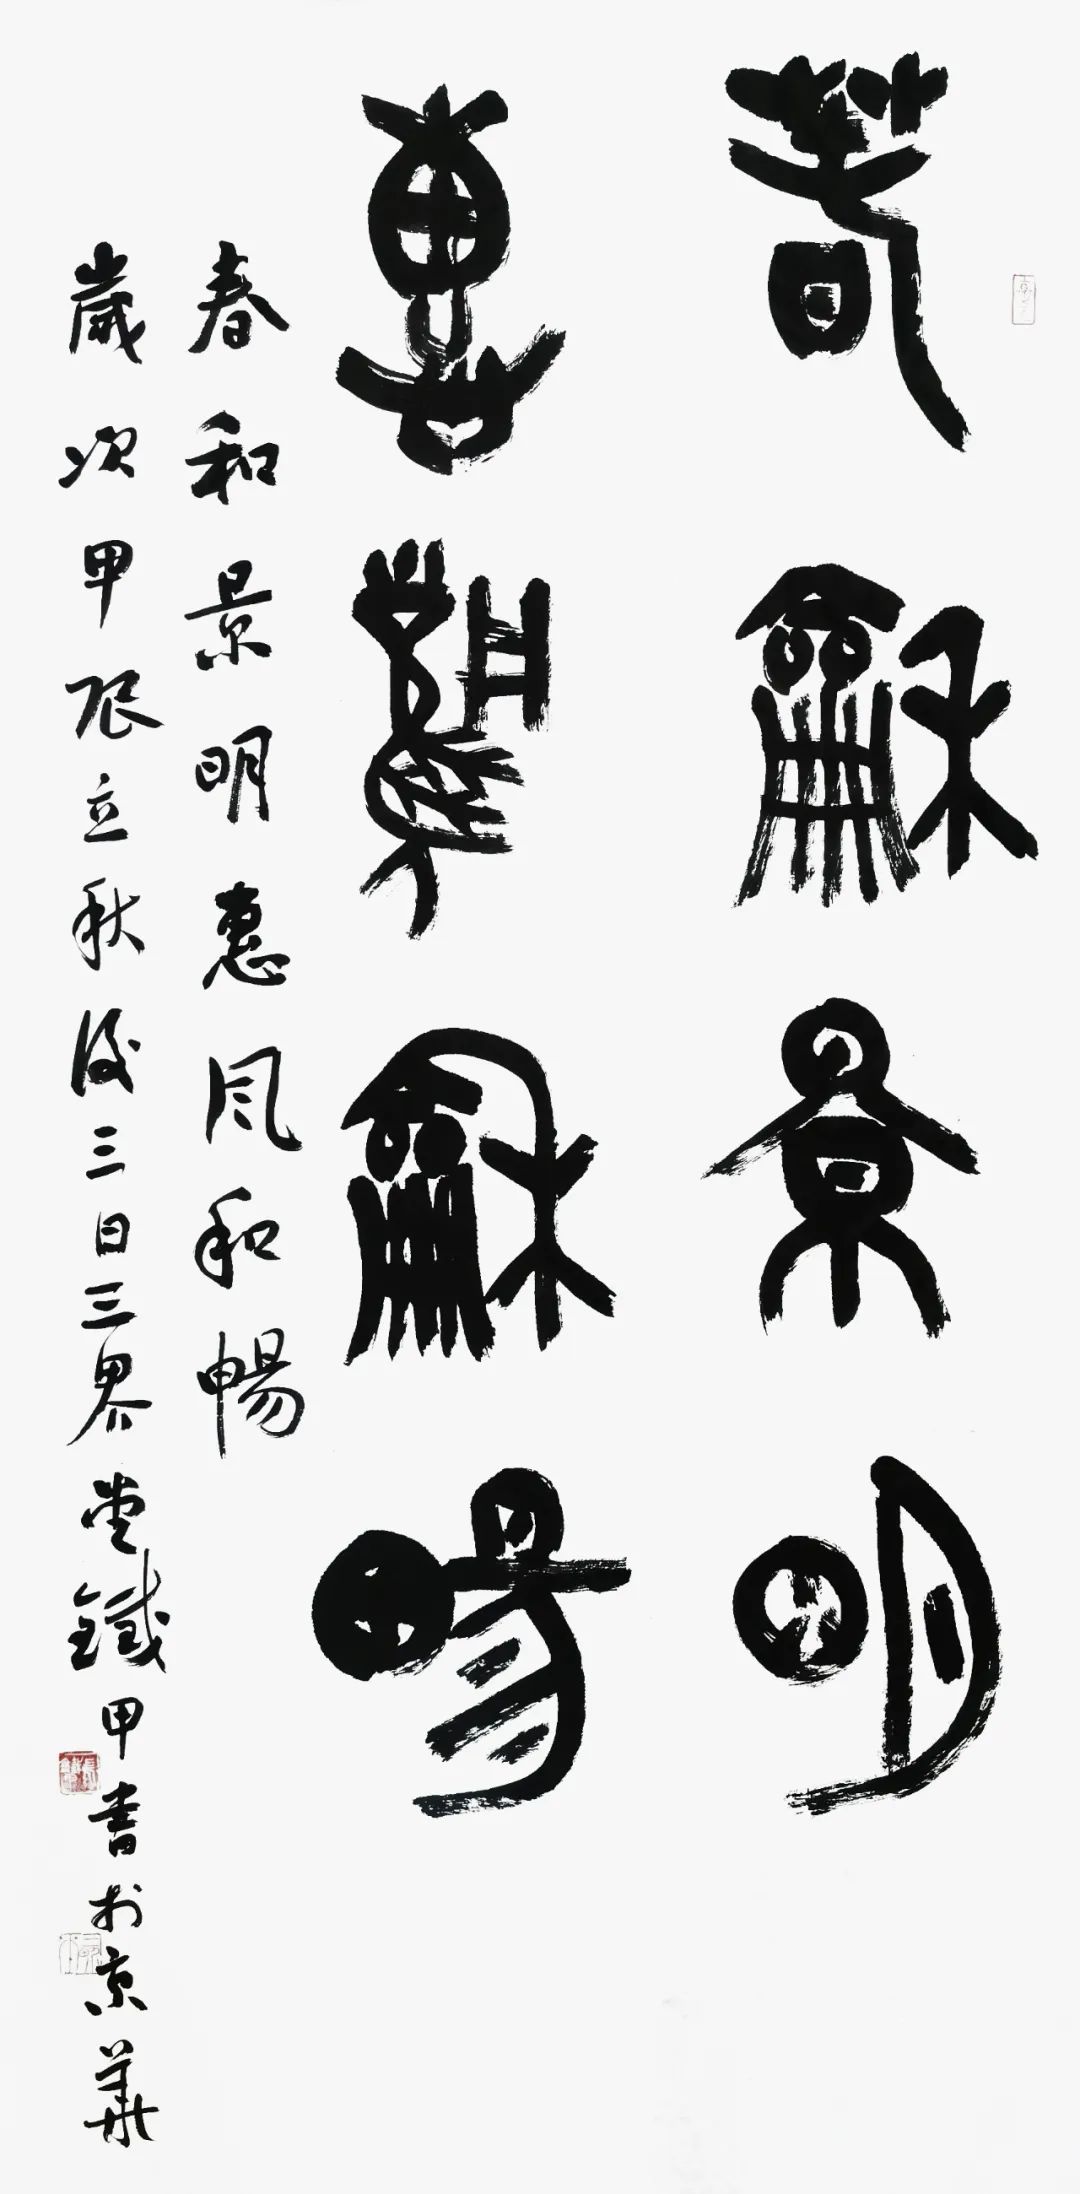 春龢景明
惠風龢暢
春和景明惠風和暢
歲次甲辰立秋後三日三界堂鐵甲書於京華